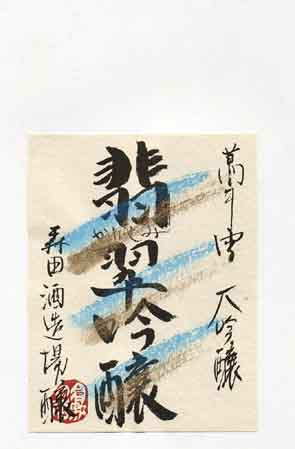 萬年雪 大吟醸
翡翠吟醸
かわせみ
森田酒造場醸